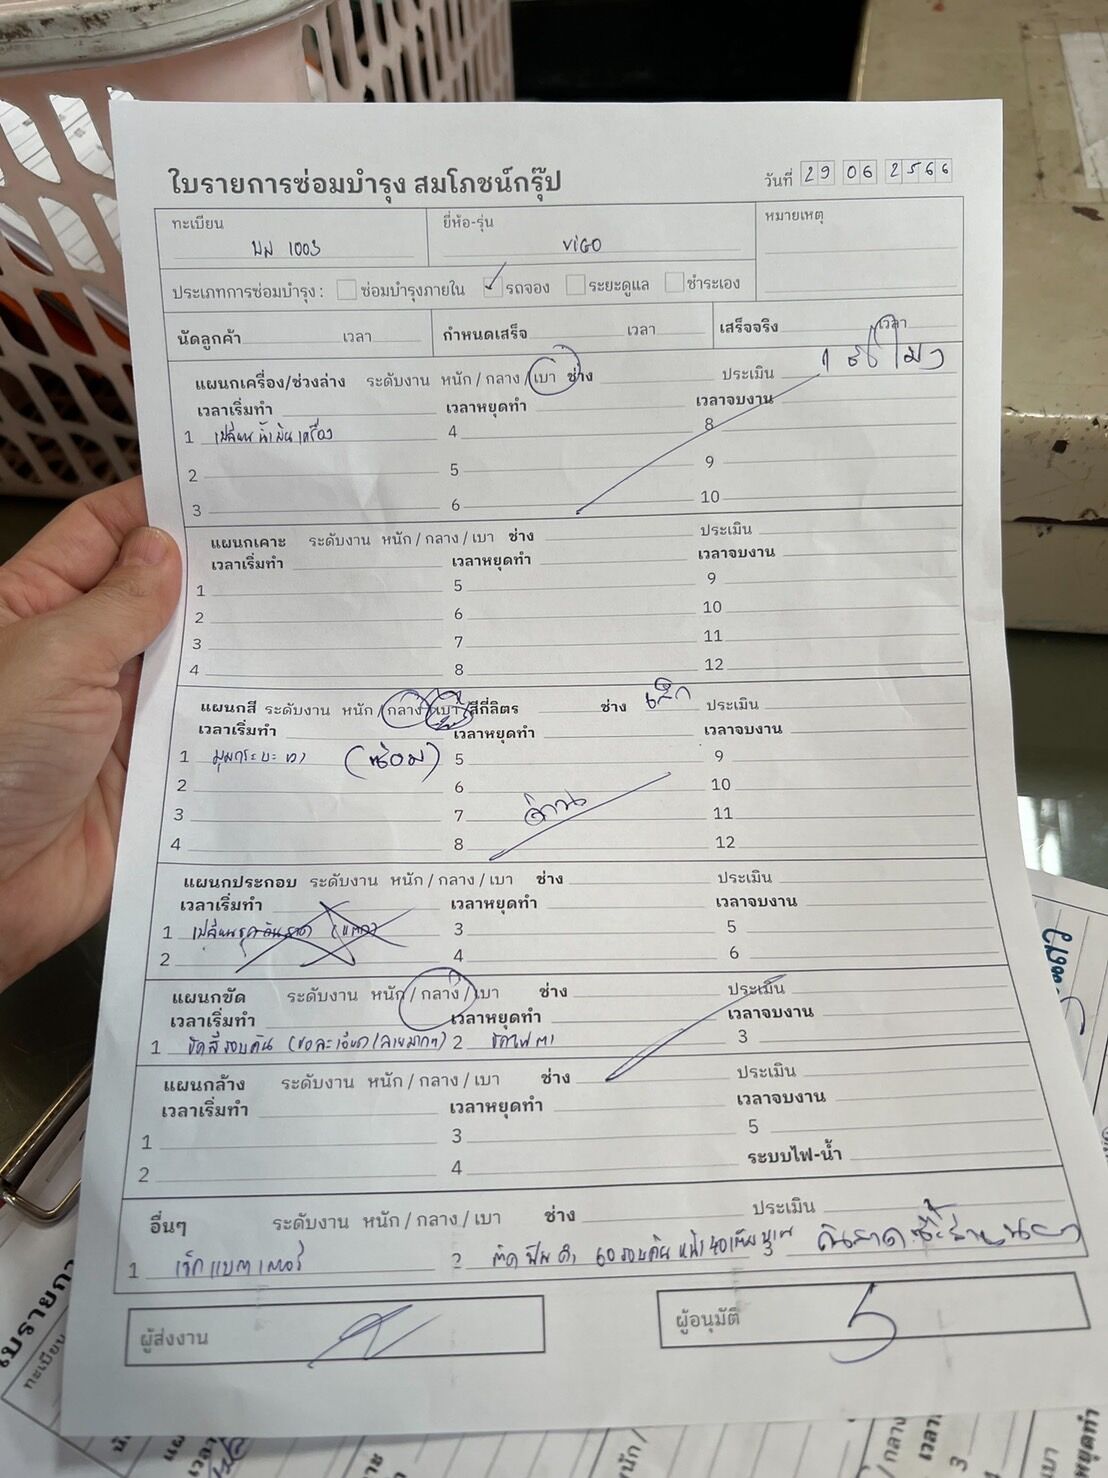 ใบรายการซ่อมบำรุง สมโภชน์กรุ๊ป
วันที่ 29 06 2566
ทะเบียน ยี่ห้อ-รุ่น หมายเหตุ
1003 ViGO
ประเภทการซ่อมบำรุง : ซ่อมบำรุงภายใน รถจอง ระยะดูแล ชำระเอง
นัดลูกค้า เวลา กำหนดเสร็จ เวลา เสร็จจริง เวลา
แผนกเครื่อง/ช่วงล่าง ระดับงาน หนัก / กลาง / เบา ช่าง ประเมิน
เวลาเริ่มทำ เวลาหยุดทำ เวลาจบงาน
1 เปลี่ยนน้ำมันเครื่อง 4 8
2 5 9
3 6 10
แผนกเคาะ ระดับงาน หนัก / กลาง / เบา ช่าง ประเมิน
เวลาเริ่มทำ เวลาหยุดทำ เวลาจบงาน
1 5 9
2 6 10
3 7 11
4 8 12
แผนกสี ระดับงาน หนัก / กลาง / เบา / สีกี่ลิตร ช่าง เล็ก ประเมิน
เวลาเริ่มทำ เวลาหยุดทำ เวลาจบงาน
1 มุมกระบะ (ซ่อม) 5 9
2 6 10
3 7 11
4 8 12
แผนกประกอบ ระดับงาน หนัก / กลาง / เบา ช่าง ประเมิน
เวลาเริ่มทำ เวลาหยุดทำ เวลาจบงาน
1 3 5
2 4 6
แผนกขัด ระดับงาน หนัก / กลาง / เบา ช่าง ประเมิน
เวลาเริ่มทำ เวลาหยุดทำ เวลาจบงาน
1 ขัดสีรอบคัน (ขอละเอียด/ลายมากๆ) 2 ขัดไฟตา 3
แผนกล้าง ระดับงาน หนัก / กลาง / เบา ช่าง ประเมิน
เวลาเริ่มทำ เวลาหยุดทำ เวลาจบงาน
1 3 5
2 4 ระบบไฟ-น้ำ
อื่นๆ ระดับงาน หนัก / กลาง / เบา ช่าง ประเมิน
1 เช็คแบตเตอรี่ 2 ติดฟิล์มดำ 60 รอบคัน หน้า 40
ผู้ส่งงาน ผู้อนุมัติ